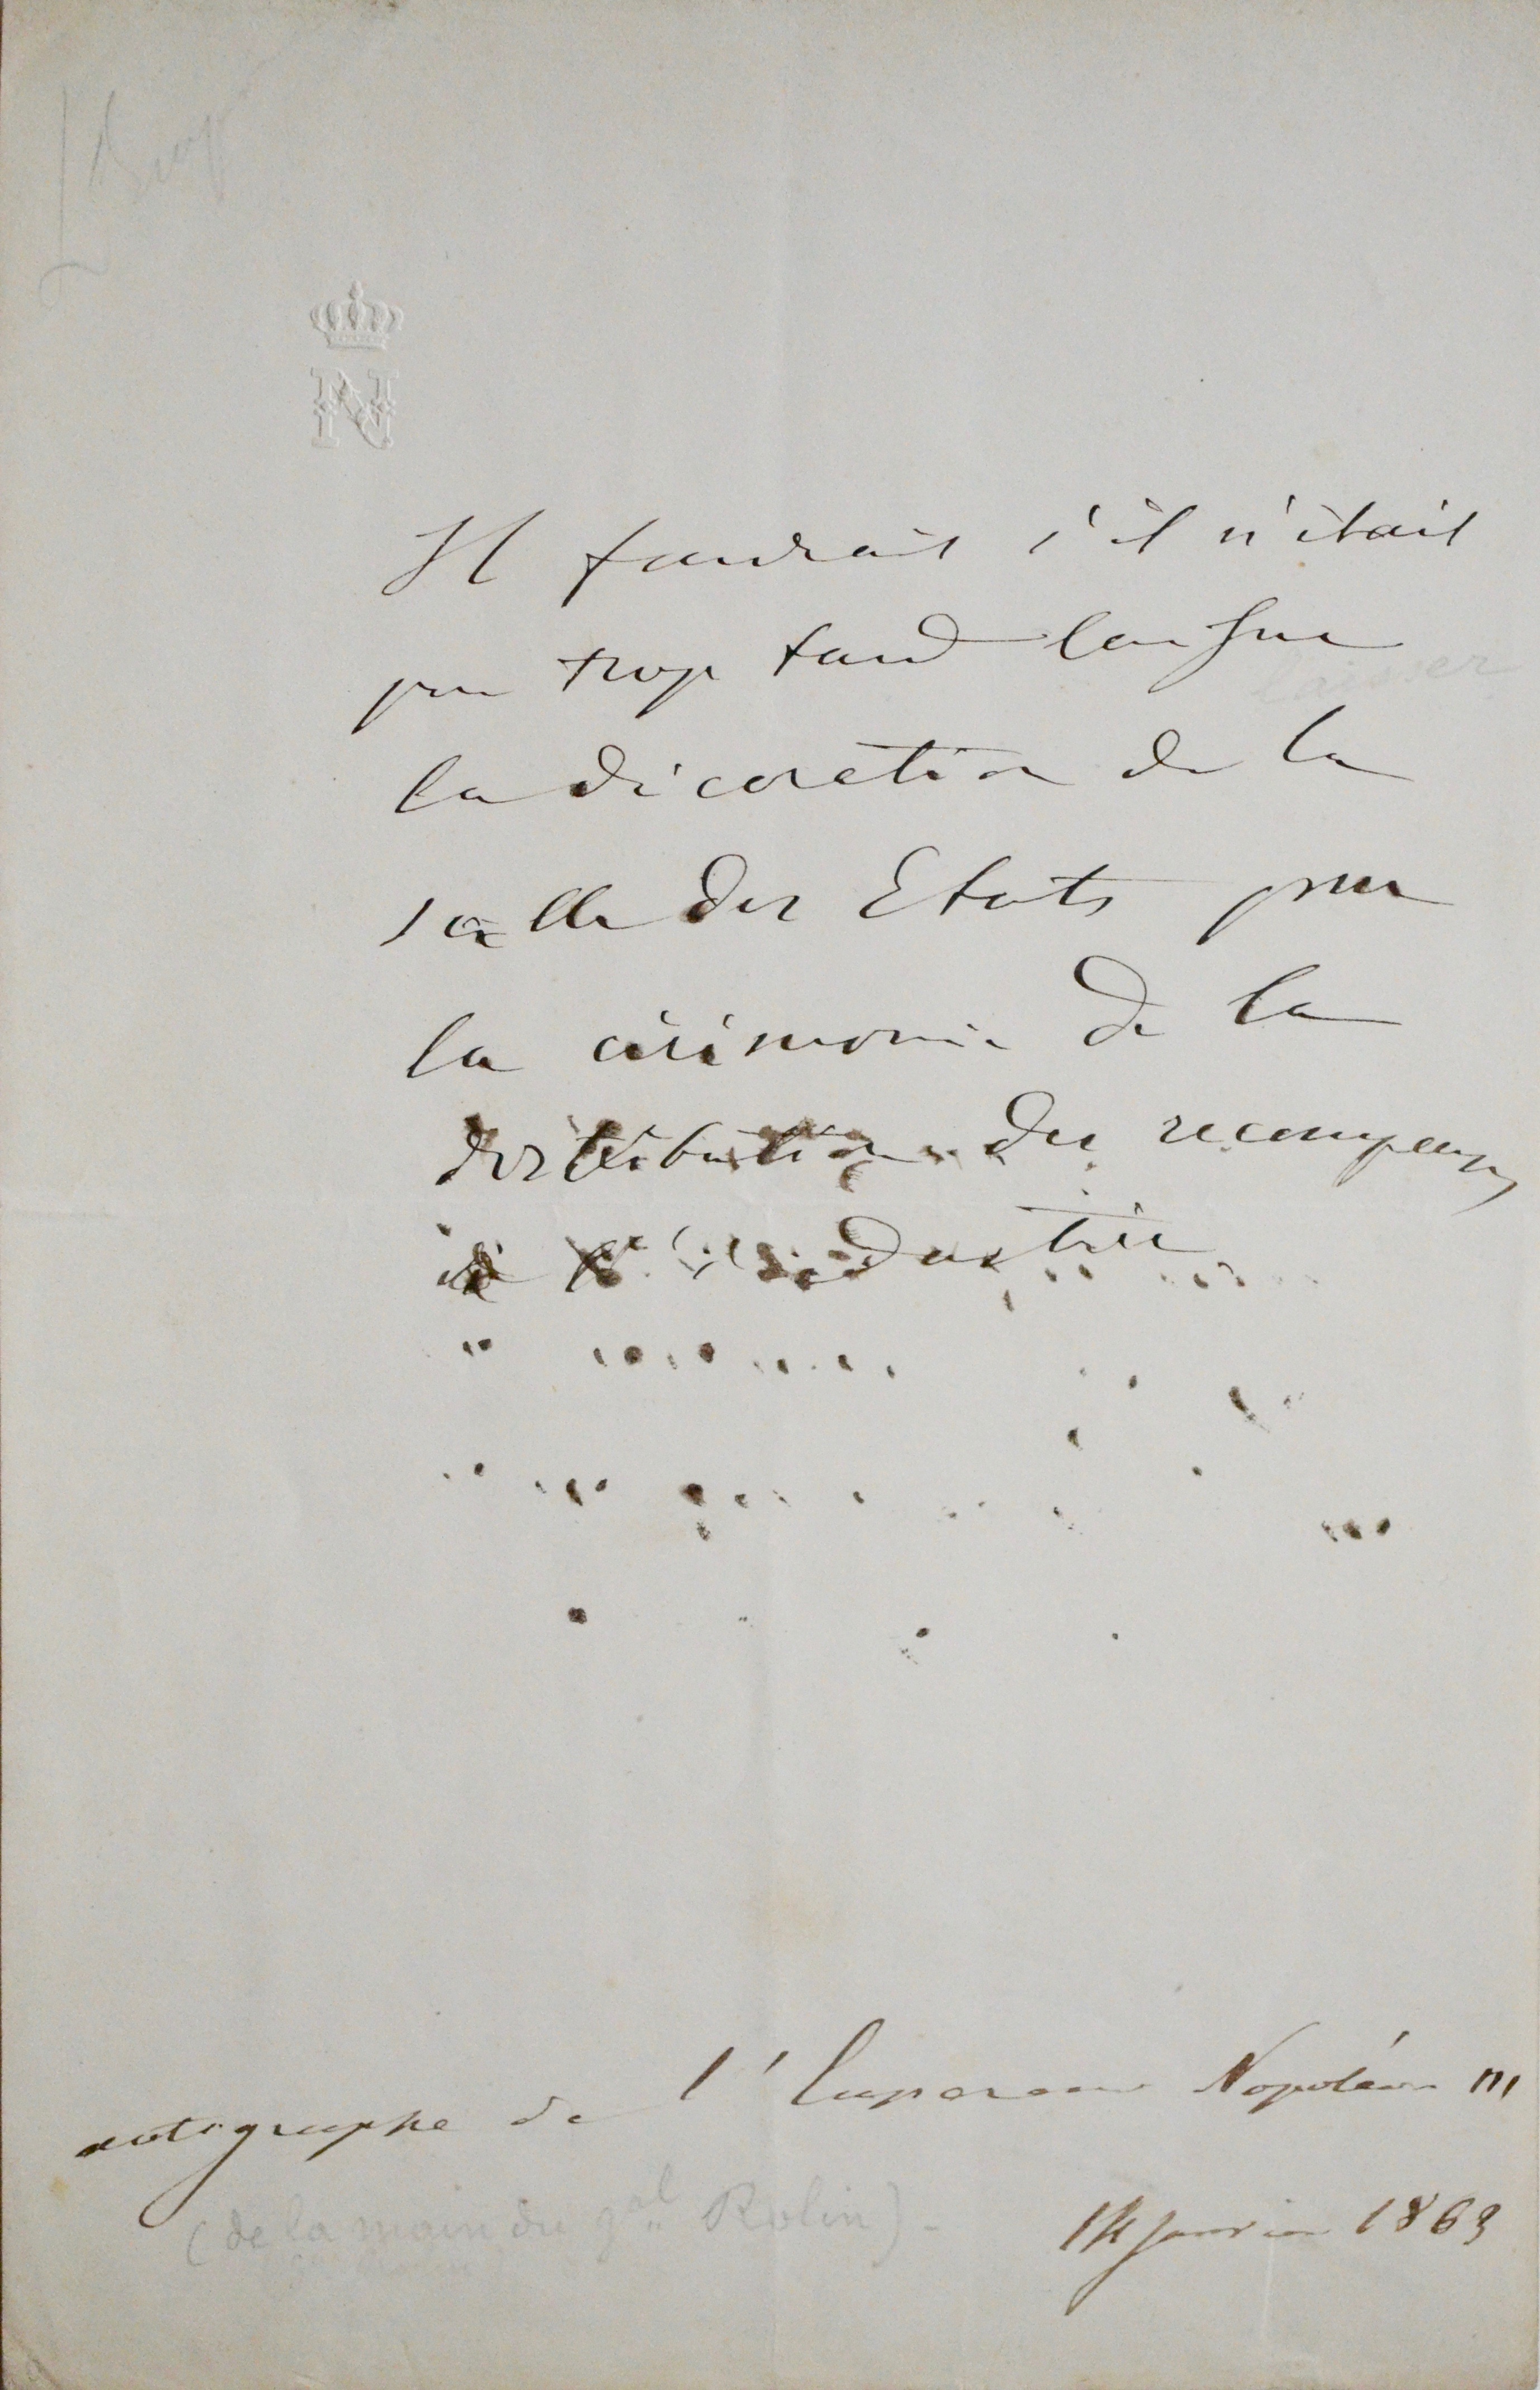 N
Il faudrait s'il n'était
pas trop tard laisser
laisser
la décoration de la
salle des Etats pour
la cérémonie de la
distribution des recompenses
à l'industrie
autographe de l'Empereur Napoléon III
(de la main du gal Rolin)
14 janvier 1863